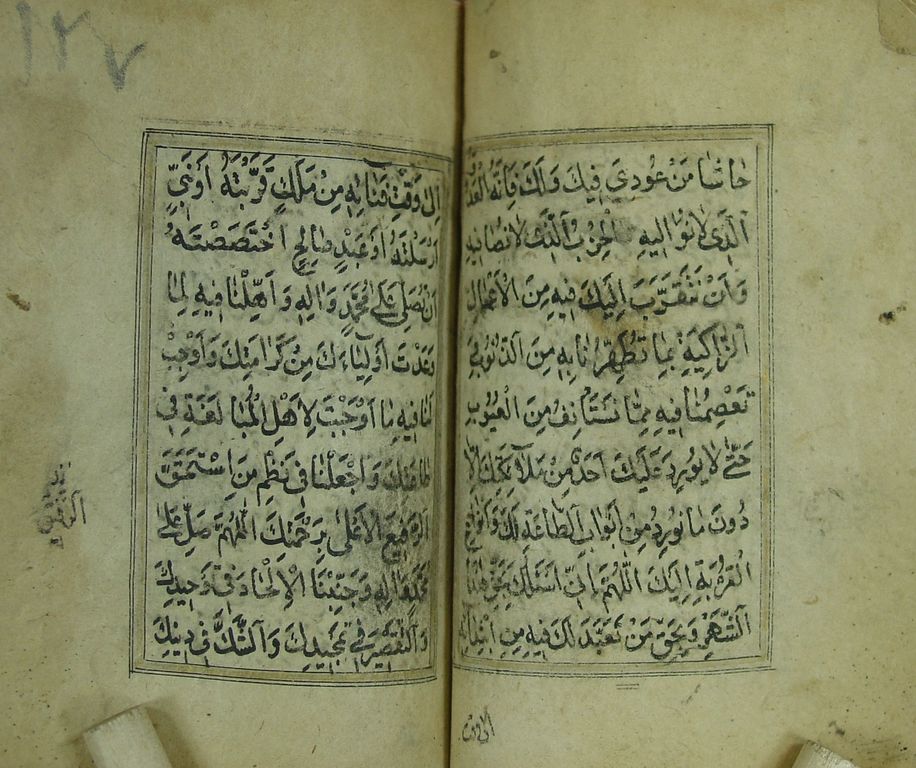 حَاشَا مَنْ عُودِيَ فِيكَ وَلَكَ فَاِنَّهُ الْعَدُوُّ
الَّذِي لَا نُوَالِيهِ الْحِزْبُ الَّذِي لَا نُصَافِيهِ
وَاَنْ نَتَقَرَّبَ اِلَيْكَ فِيهِ مِنَ الْاَعْمَالِ
الزَّاكِيَةِ بِمَا تُطَهِّرُنَا بِهِ مِنَ الذُّنُوبِ وَ
تَعْصِمُنَا فِيهِ مِمَّا نَسْتَأْنِفُ مِنَ الْعُيُوبِ
حَتَّى لَا يُورِدَ عَلَيْكَ اَحَدٌ مِنْ مَلَائِكَتِكَ اِلَّا
دُونَ مَا نُورِدُ مِنْ اَبْوَابِ الطَّاعَةِ لَكَ وَاَنْوَاعِ
الْقُرْبَةِ اِلَيْكَ اَللّٰهُمَّ اِنِّي اَسْئَلُكَ بِحَقِّ هٰذَا
الشَّهْرِ وَبِحَقِّ مَنْ تَعَبَّدَ لَكَ فِيهِ مِنِ ابْتِدَائِهِ
اِلٰى وَقْتِ
١٢٧
اِلٰى وَقْتِ فَنَائِهِ مِنْ مَلَكٍ قَرَّبْتَهُ اَوْ نَبِيٍّ
اَرْسَلْتَهُ اَوْ عَبْدٍ صَالِحٍ اخْتَصَصْتَهُ
اَنْ تُصَلِّيَ عَلٰى مُحَمَّدٍ وَاٰلِهِ وَاَهِّلْنَا فِيهِ لِمَا
وَعَدْتَ اَوْلِيَاءَكَ مِنْ كَرَامَتِكَ وَاَوْجِبْ
لَنَا فِيهِ مَا اَوْجَبْتَ لِاَهْلِ الْمُبَالَغَةِ فِي
طَاعَتِكَ وَاجْعَلْنَا فِي نَظْمِ مَنِ اسْتَحَقَّ
الرَّفِيعَ الْاَعْلٰى بِرَحْمَتِكَ اَللّٰهُمَّ صَلِّ عَلٰى
مُحَمَّدٍ وَاٰلِهِ وَجَنِّبْنَا الْاِلْحَادَ فِي تَوْحِيدِكَ
وَالتَّقْصِيرَ فِي تَمْجِيدِكَ وَالشَّكَّ فِي دِينِكَ